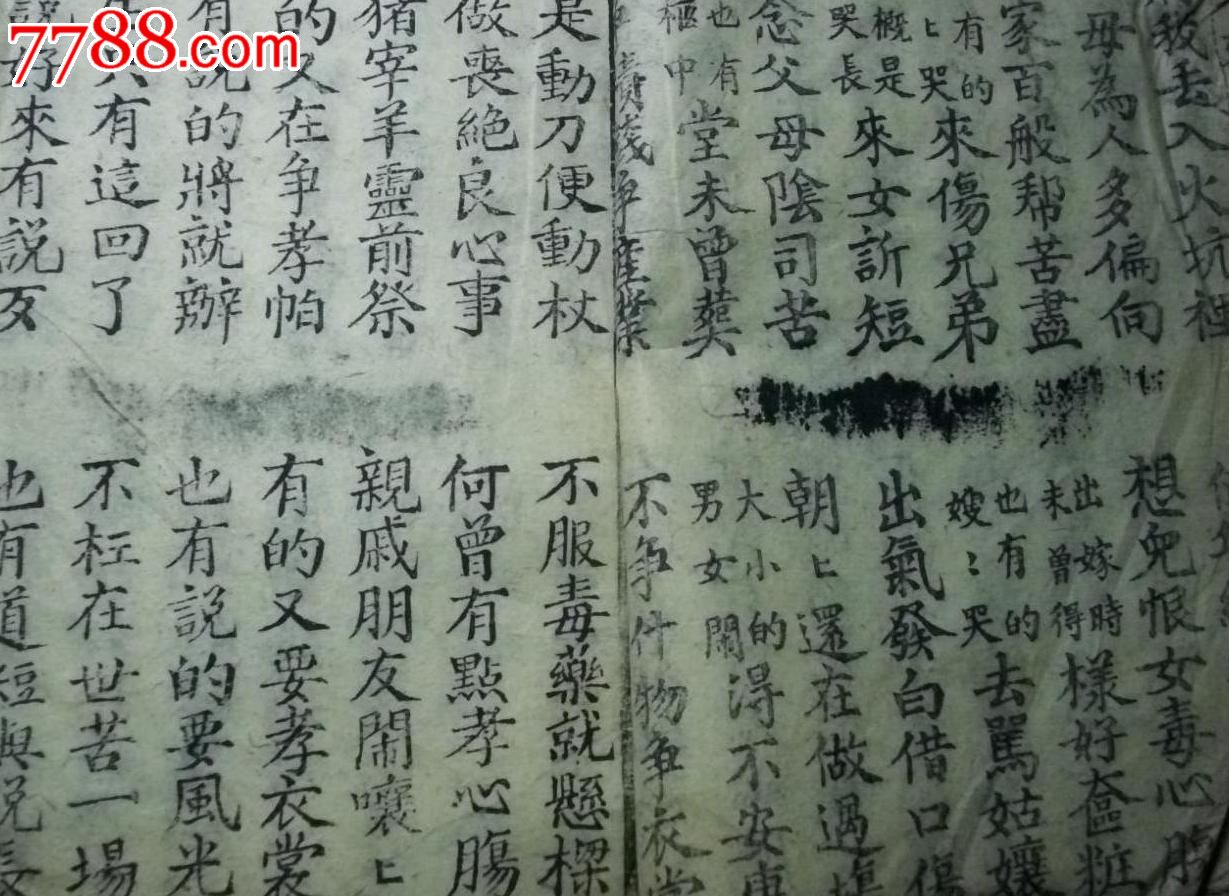 7788.com
我丢入火坑裡
母為人多偏向 想兒恨女毒心
家百般帮苦盡 出嫁時未曾得樣好奩粧
有的〻哭來傷兄弟 也有的嫂〻哭去罵姑孃
概是哭長來女訴短 出氣發白借口傷
念父母陰司苦 朝〻還在做過
也有柩中堂未曾葬 大小的男女鬧得不安康
賣錢争產業 不争件物争衣裳
是動刀便動杖 不服毒藥就懸樑
做喪絕良心事 何曾有點孝心腸
猪宰羊靈前祭 親戚朋友鬧嚷〻
的又在争孝帕 有的又要孝衣裳
有說的將就辦 也有說的要風光
只有這回了 不枉在世苦一場
說好來有說歹 也有道短與說長